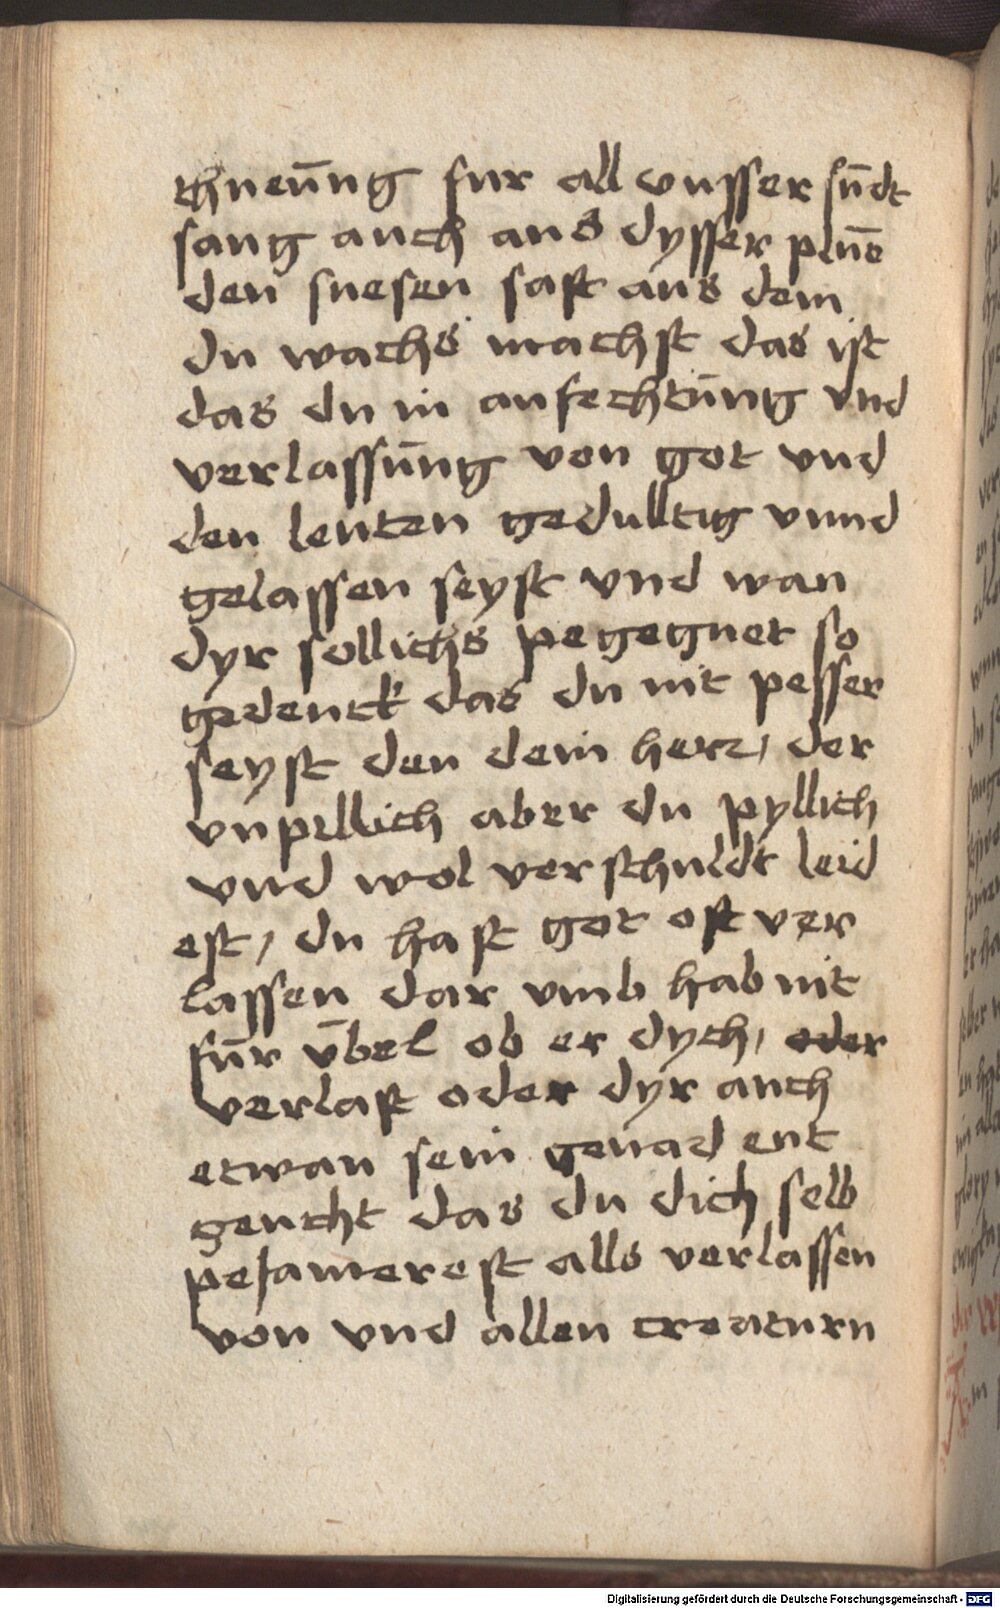 thueūng fur all vnsser sūdt
saug auch aus dysser plūe
den suesen saft aus dem
du wachs machst das ist
das du in anfechtūng vnd
verlassūng von got vnd
den leuten gedulltig vnnd
gelassen seyst vnd wan
dyr sollichs pegegnet so
gedenck das du nit pesser
seyst den dein herr, der
vnpillich aber du pyllich
vnd wol verschuldt leid
est, du hast got oft ver
lassen dar vmb hab nit
fūr v̄bel ob er dych, oder
verlast oder dyr auch
etwan sein genad ent
zeucht das du dich selb
pejamerest alls verlassen
von vnd allen creaturn
Digitalisierung gefördert durch die Deutsche Forschungsgemeinschaft - DFG